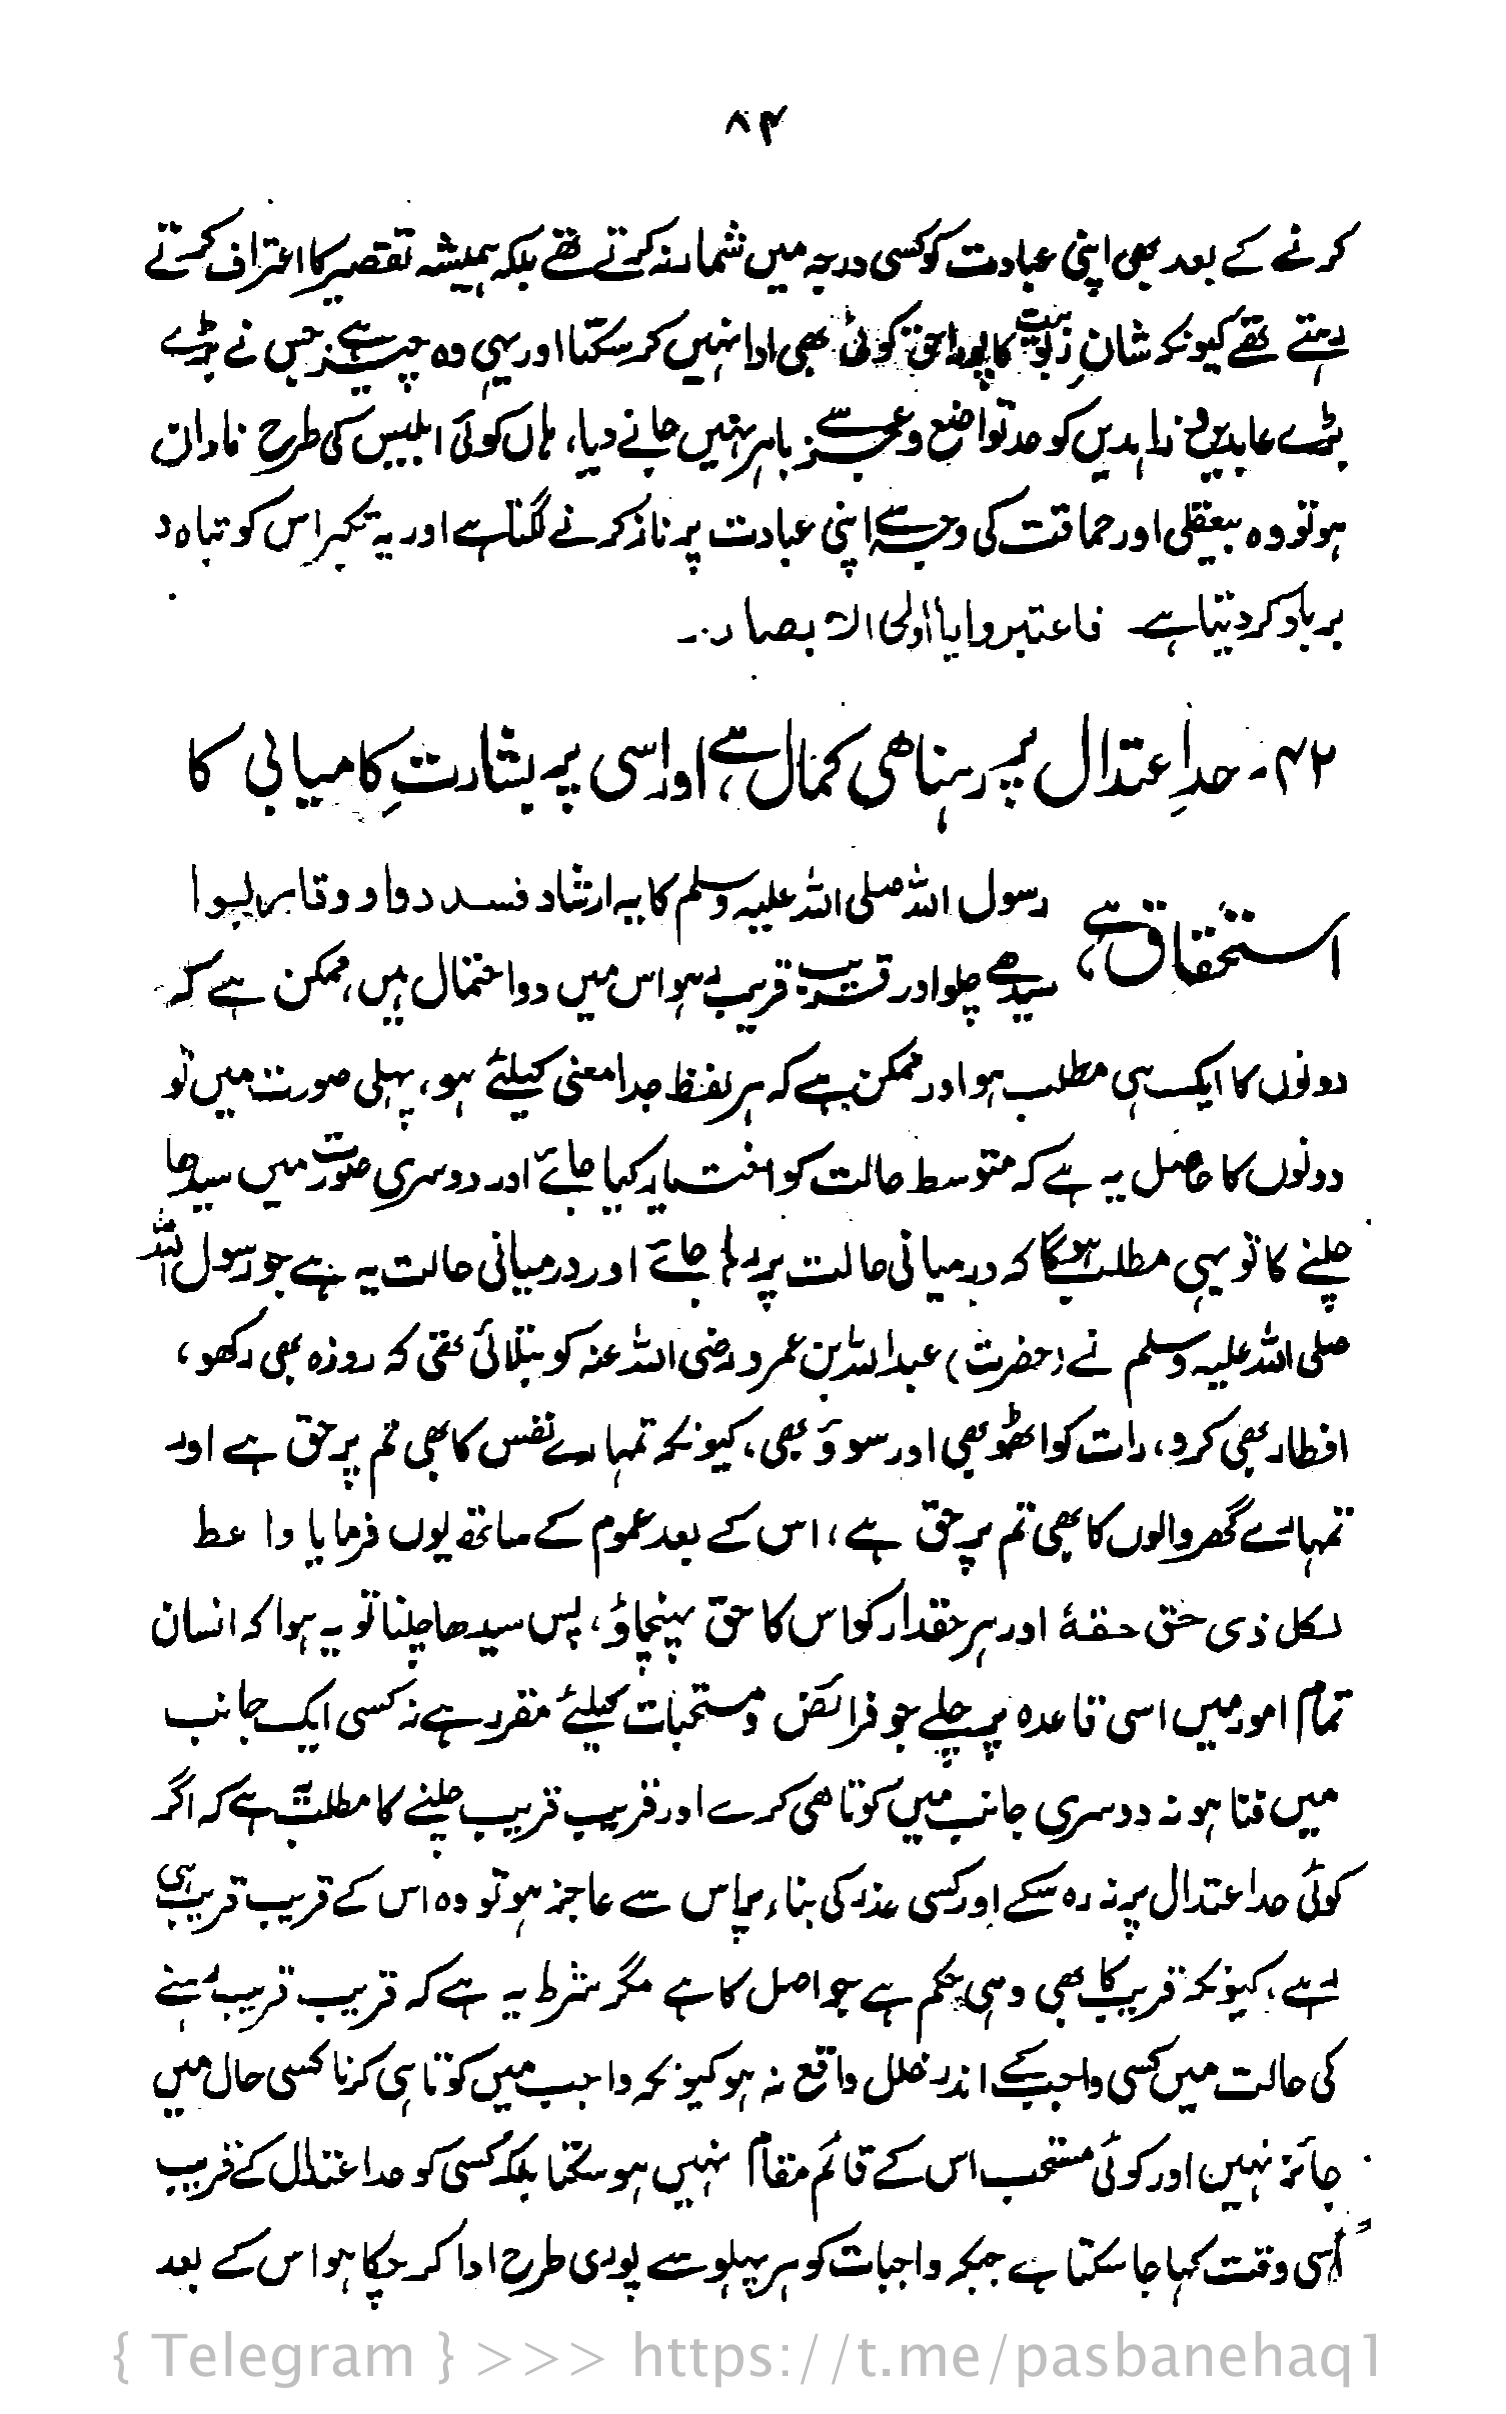 ۸۴
کرنے کے بعد بھی اپنی عبادت کو کسی درجہ میں شمار نہ کرتے تھے بلکہ ہمیشہ تقصیر کا اعتراف کرتے
رہتے تھے کیونکہ شانِ ربوبیت کا پورا حق کوئی بھی ادا نہیں کر سکتا اور یہی وہ چیز ہے جس نے بڑے
بڑے عابدین و زاہدین کو حد تواضع و عجز سے باہر نہیں جانے دیا، ہاں کوئی ابلیس کی طرح نادان
ہو تو وہ بیعقلی اور حماقت کی وجہ سے اپنی عبادت پر ناز کرنے لگتا ہے اور یہ تکبر اس کو تباہ و
برباد کر دیتا ہے فاعتبروا یا اولی الابصار۔
۴۲۔ حدِ اعتدال پر رہنا ھی کمال ہے، اور اسی پر بشارتِ کامیابی کا
استحقاق ہے، رسول اللہ صلی اللہ علیہ وسلم کا یہ ارشاد فسددوا و وقاربوا
سیدھے چلو اور قریب قریب رہو اس میں دو احتمال ہیں، ممکن ہے کہ
دونوں کا ایک ہی مطلب ہو اور ممکن ہے کہ ہر لفظ جدا معنی کیلئے ہو، پہلی صورت میں تو
دونوں کا حاصل یہ ہے کہ متوسط حالت کو اختیار کیا جائے اور دوسری صورت میں سیدھا
چلنے کا تو یہی مطلب ہوگا کہ درمیانی حالت پر رہا جائے اور درمیانی حالت یہ ہے جو رسول اللہ
صلی اللہ علیہ وسلم نے (حضرت) عبداللہ بن عمرو رضی اللہ عنہ کو بتلائی تھی کہ روزہ بھی رکھو،
افطار بھی کرو، رات کو اٹھو بھی اور سوؤ بھی، کیونکہ تمہارے نفس کا بھی تم پر حق ہے اور
تمہارے گھر والوں کا بھی تم پر حق ہے، اس کے بعد عموم کے ساتھ یوں فرمایا وا عط
لکل ذی حق حقہٗ اور ہر حقدار کو اس کا حق پہنچاؤ، پس سیدھا چلنا تو یہ ہوا کہ انسان
تمام امور میں اسی قاعدہ پر چلے جو فرائض و مستحبات کیلئے مقرر ہے نہ کسی ایک جانب
میں فنا ہو نہ دوسری جانب میں کوتاھی کرے اور قریب قریب چلنے کا مطلب یہ ہے کہ اگر
کوئی حد اعتدال پر نہ رہ سکے اور کسی عذر کی بناء پر اس سے عاجز ہو تو وہ اس کے قریب قریب ہی
رہے، کیونکہ قریب کا بھی وہی حکم ہے جو اصل کا ہے مگر شرط یہ ہے کہ قریب قریب رہنے
کی حالت میں کسی واجب کے اندر خلل واقع نہ ہو کیونکہ واجب میں کوتاہی کرنا کسی حال میں
جائز نہیں اور کوئی مستحب اس کے قائم مقام نہیں ہو سکتا بلکہ کسی کو حد اعتدال کے قریب
اُسی وقت کہا جا سکتا ہے جبکہ واجبات کو ہر پہلو سے پوری طرح ادا کر چکا ہو اس کے بعد
{ Telegram } >>> https://t.me/pasbanehaq1